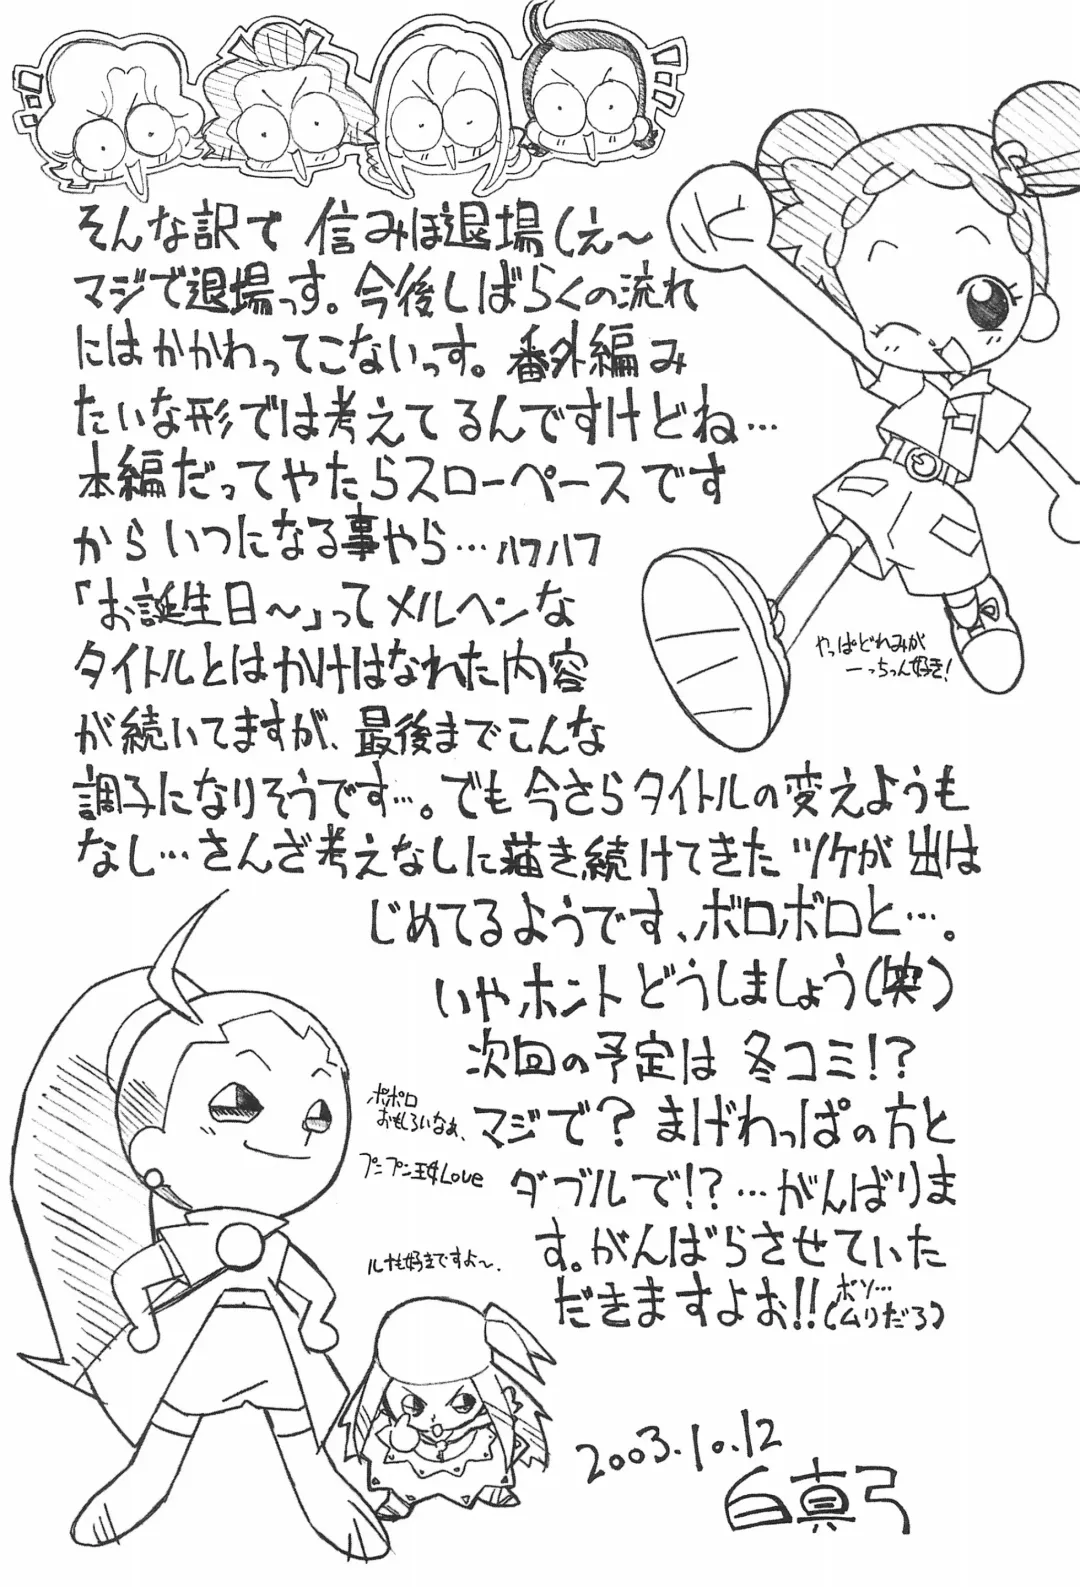 そんな訳で 信みほ退場(え〜
マジで退場っす。今後しばらくの流れ
にはかかわってこないっす。番外編み
たいな形では考えてるんですけどね…
本編だってやたらスローペースです
からいつになる事やら…ハフハフ
「お誕生日〜」ってメルヘンな
タイトルとはかけはなれた内容
が続いてますが、最後までこんな
調子になりそうです…。でも今さらタイトルの変えようも
なし…さんざ考えなしに描き続けてきたツケが出は
じめてるようです、ボロボロと…。
いやホントどうしましょう(笑)
次回の予定は 冬コミ!?
マジで?まげわっぱの方と
ダブルで!?…がんばりま
す。がんばらさせていた
だきますよお!!(ムリだろ)
ボソ…
やっぱどれみが
一っちゃん好き!
ポポロ
おもしろいなぁ、
プンプン王女Love
ルナも好きですよ〜。
2003.10.12
白真弓